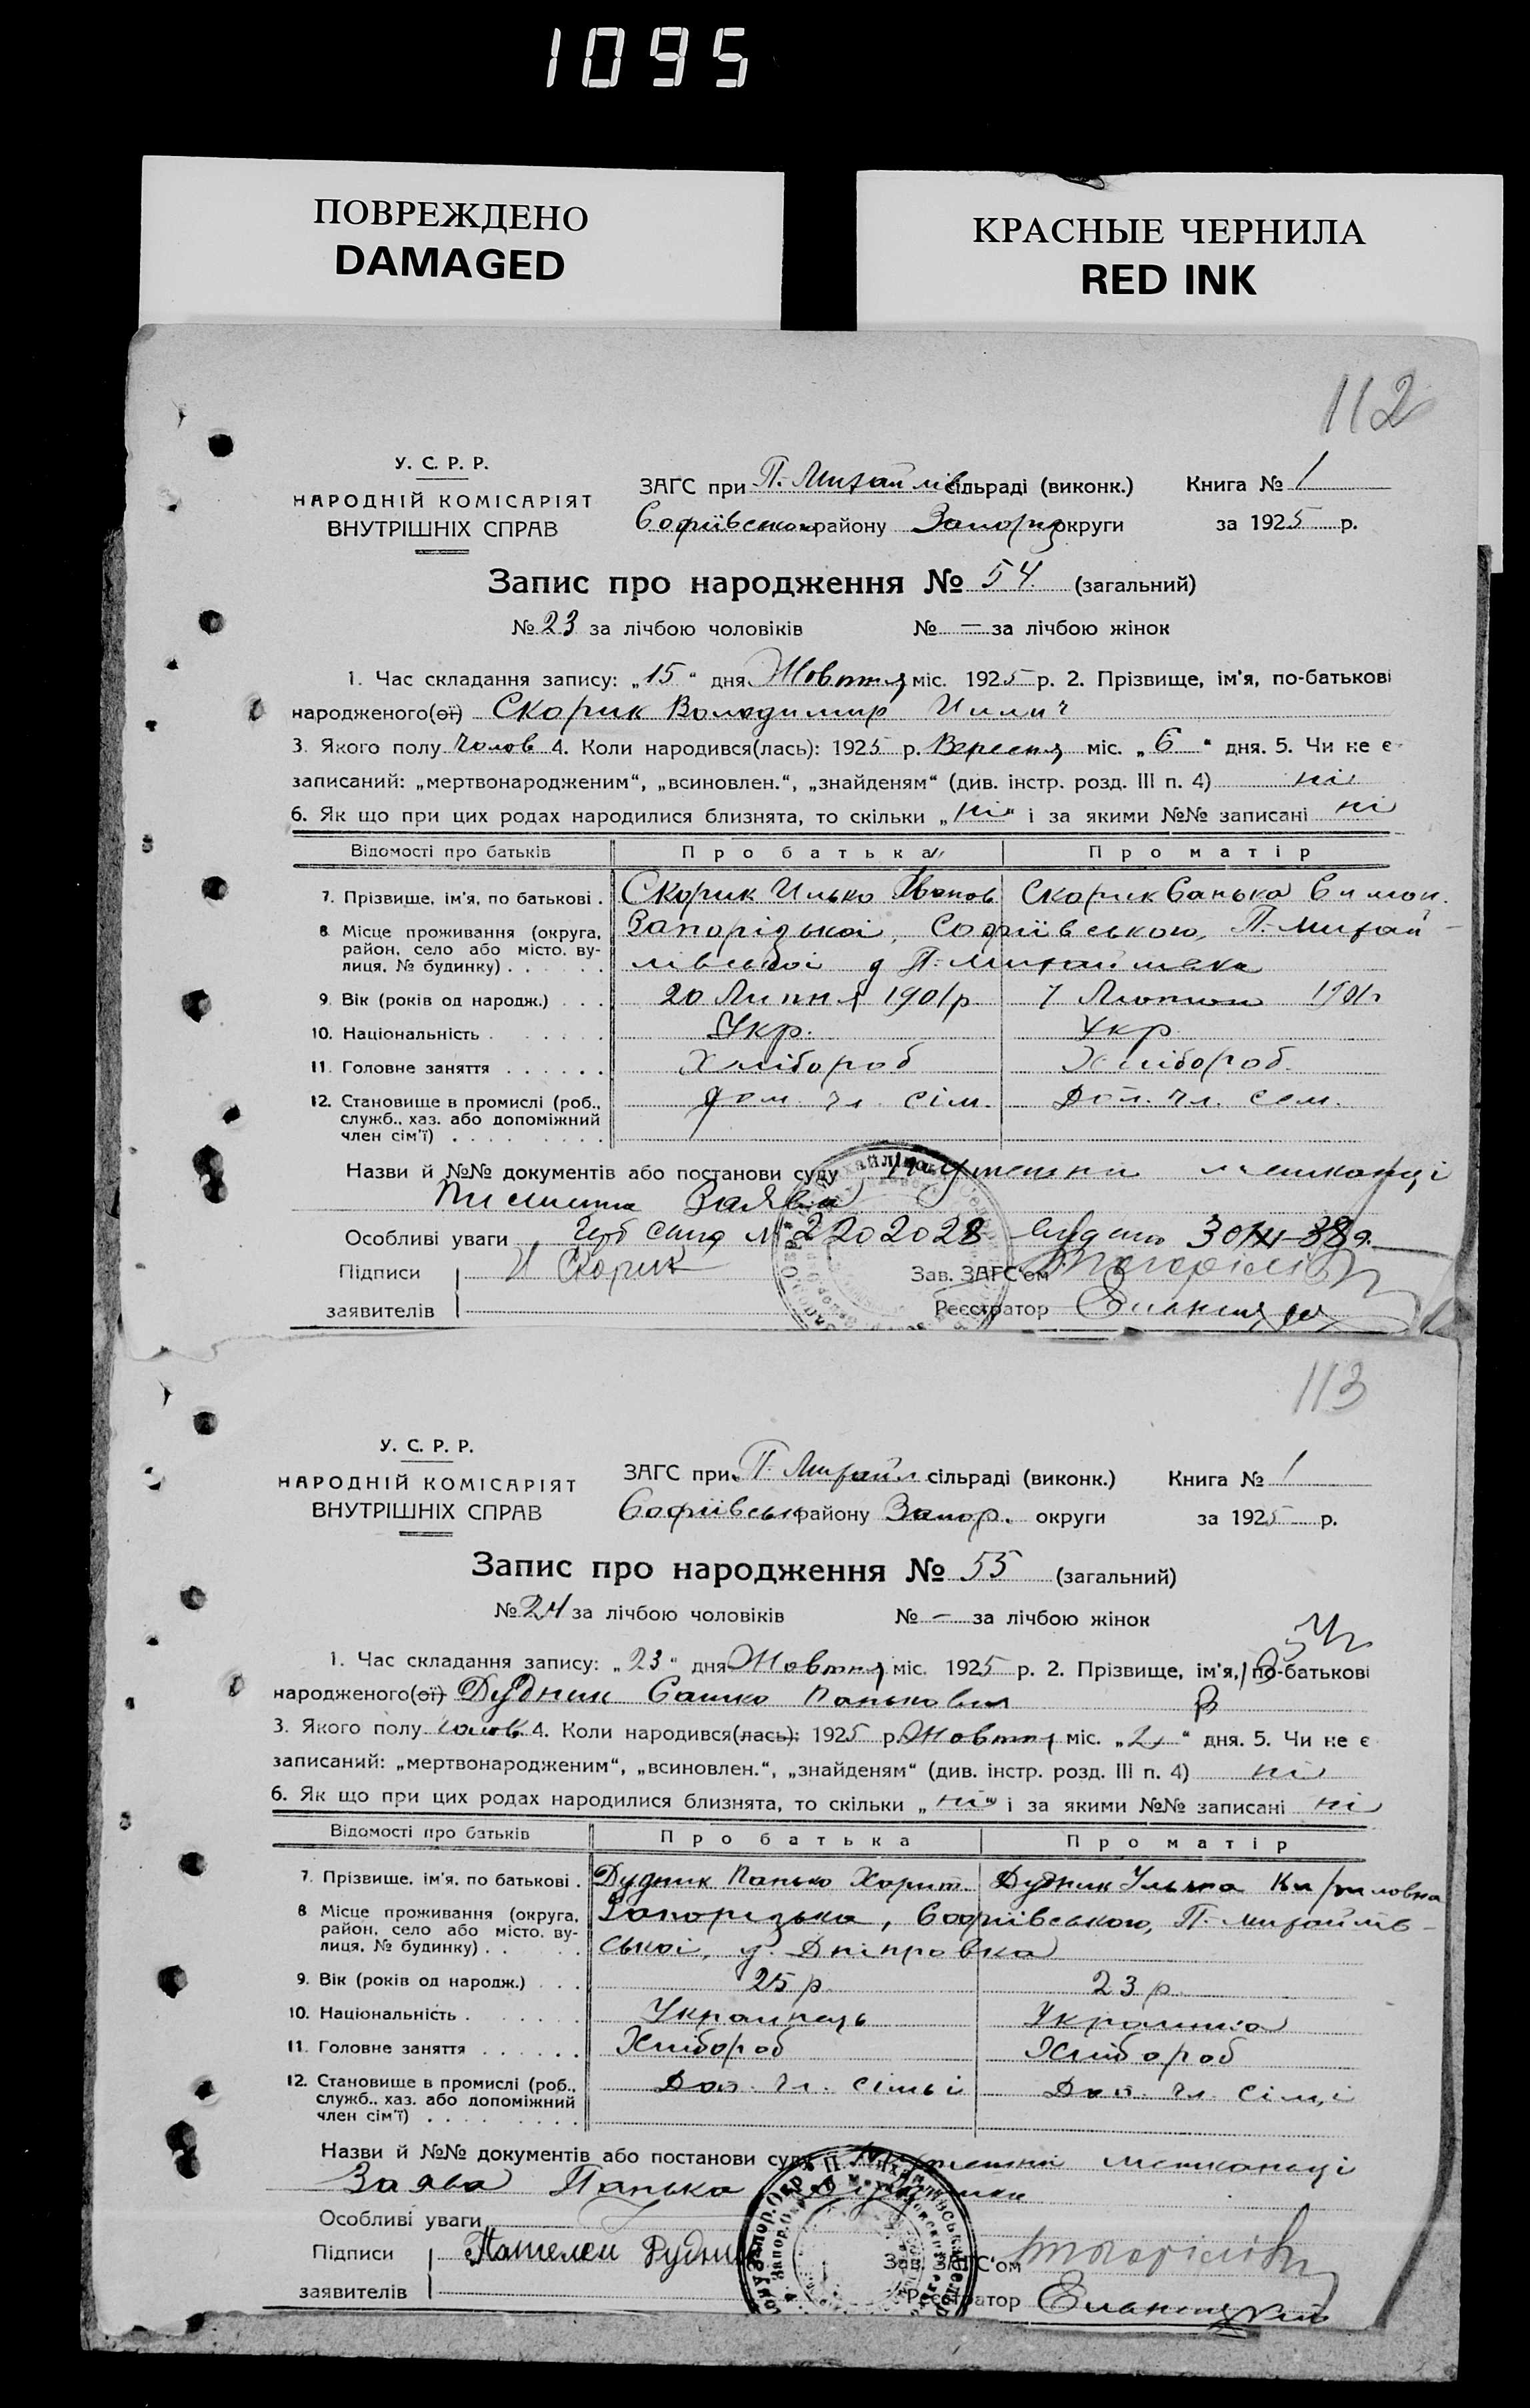 1095
ПОВРЕЖДЕНО
DAMAGED
КРАСНЫЕ ЧЕРНИЛА
RED INK
112
У. С. Р. Р.
НАРОДНІЙ КОМІСАРІЯТ
ВНУТРІШНІХ СПРАВ
ЗАГС при П.-Михайлів сільраді (виконк.) Книга № 1
Софіївською району Запоріз округи за 1925 р.
Запис про народження № 54 (загальний)
№ 23 за лічбою чоловіків № — за лічбою жінок
1. Час складання запису: „15" дня Жовтня міс. 1925 р. 2. Прізвище, ім'я, по-батькові
народженого(ої) Скорик Володимир
3. Якого полу Чолов 4. Коли народився(лась): 1925 р. Вересня міс. „6" дня. 5. Чи не є
записаний: „мертвонародженим", „всиновлен.", „знайденям" (див. інстр. розд. III п. 4) ні
6. Як що при цих родах народилися близнята, то скільки „ні" і за якими №№ записані ні
Відомості про батьків Про батька Про матір
7. Прізвище, ім'я, по батькові . Скорик Илько Іванов Скорик Санька Симон.
8 Місце проживання (округа, район, село або місто, вулиця, № будинку) . . . Запорізької, Софіївською, П.-Михай-
лівської
9. Вік (років од народж.) . . . 20 Липня 1901 р. 7 Лютого 1901 р
10. Національність . Укр. Укр
11. Головне заняття . . . . . . Хлібороб Хлібороб.
12. Становище в промислі (роб., служб., хаз. або допоміжний член сім'ї) . . . чл. сім. Доп. чл. сем.
Назви й №№ документів або постанови суду мешканці
Заява
Особливі уваги № 2202028 30/XII-38 р.
Підписи заявителів И Скорик
Зав. ЗАГС'ом
Реєстратор
113
У. С. Р. Р.
НАРОДНІЙ КОМІСАРІЯТ
ВНУТРІШНІХ СПРАВ
ЗАГС при П.-Михайл сільраді (виконк.) Книга № 1
Софіївськ району Запор. округи за 1925 р.
Запис про народження № 55 (загальний)
№ 24 за лічбою чоловіків № — за лічбою жінок
1. Час складання запису: „23" дня Жовтня міс. 1925 р. 2. Прізвище, ім'я, по-батькові
народженого(ої) Дудник Сашко
3. Якого полу чолов. 4. Коли народився(лась): 1925 р. Жовтня міс. „ " дня. 5. Чи не є
записаний: „мертвонародженим", „всиновлен.", „знайденям" (див. інстр. розд. III п. 4) ні
6. Як що при цих родах народилися близнята, то скільки „ні" і за якими №№ записані ні
Відомості про батьків Про батька Про матір
7. Прізвище, ім'я, по батькові . Дудник Панько Харит. Дудник Улька Кириловна
8 Місце проживання (округа, район, село або місто, вулиця, № будинку) . . Запорізька, Софіївською, П.-Михайлів-
ської, Дніпровка
9. Вік (років од народж.) . . . 25 р. 23 р.
10. Національність . Українець Українка
11. Головне заняття . . . . . . Хлібороб Хлібороб
12. Становище в промислі (роб., служб., хаз. або допоміжний член сім'ї) . . . Доп. чл. сімьі Доп. чл. сім,і
Назви й №№ документів або постанови суду мешканці
Заява Панька
Особливі уваги
Підписи заявителів Дудник
Зав. ЗАГС'ом
Реєстратор